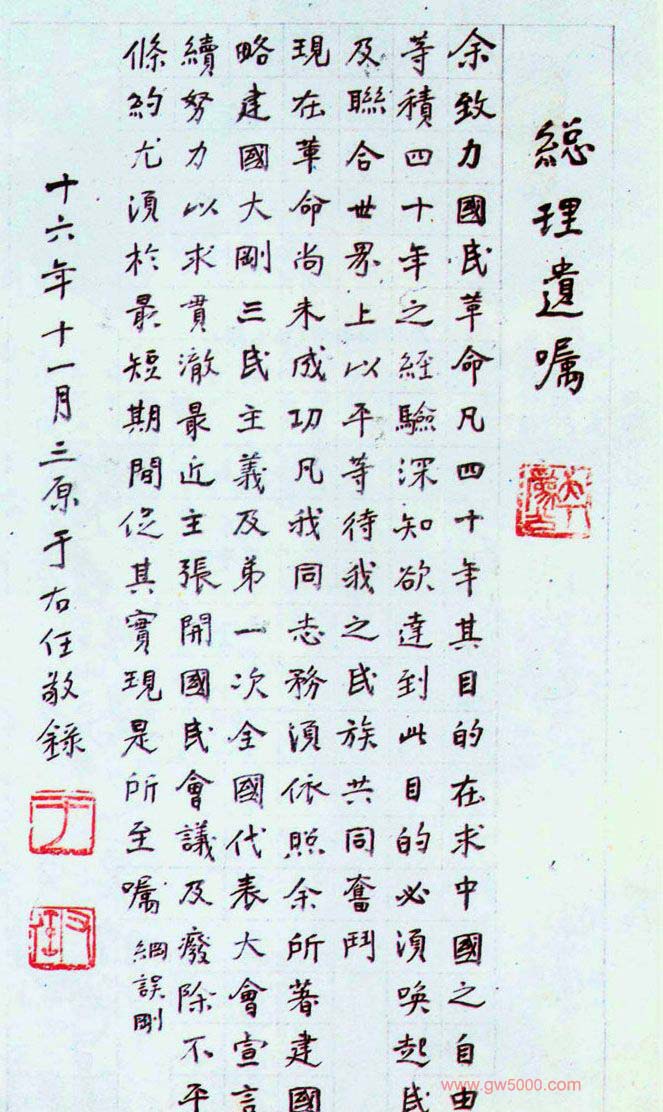 緫理遺嘱
余致力國民革命凡四十年其目的在求中國之自由
等積四十年之經驗深知欲達到此目的必須喚起民
及聯合世界上以平等待我之民族共同奮鬥
現在革命尚未成功凡我同志務須依照余所著建國
略建國大剛三民主義及弟一次全國代表大會宣言
續努力以求貫澈最近主張開國民會議及廢除不平
條約尤須於最短期間促其實現是所至嘱 綱誤剛
十六年十一月三原于右任敬錄
于
www.gw5000.com